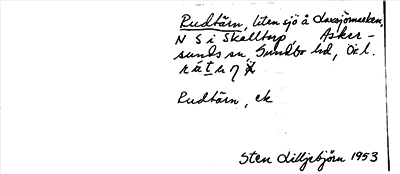 Rudtärn, liten sjö å Laxsjömarken,
N S i Skalltorp, Asker-
sunds sn, Sundbo hd, Ör. l.
Rudtärn, ek
Sten Lilljebjörn 1953